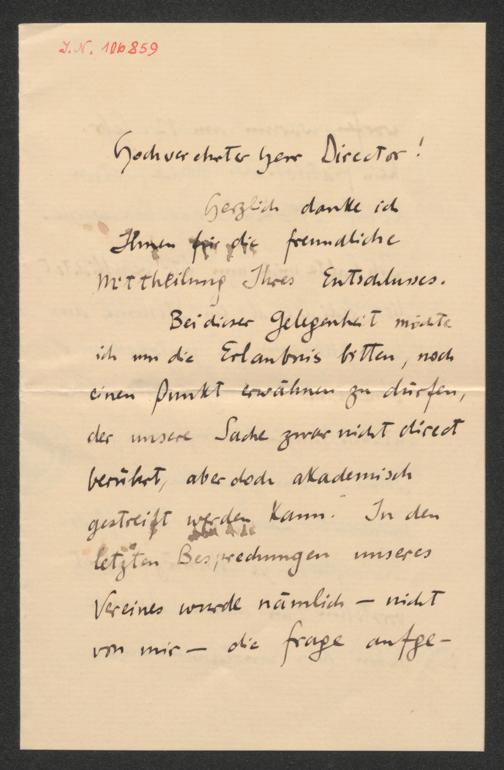 I.N. 106859
Hochverehrter Herr Director!
Herzlich danke ich
Ihnen für die freundliche
Mittheilung Ihres Entschlusses.
Bei dieser Gelegenheit möchte
ich um die Erlaubnis bitten, noch
einen Punkt erwähnen zu dürfen,
der unsere Sache zwar nicht direct
berührt, aber doch akademisch
gestreift werden kann. In den
letzten Besprechungen unseres
Vereines wurde nämlich — nicht
von mir — die Frage aufge-